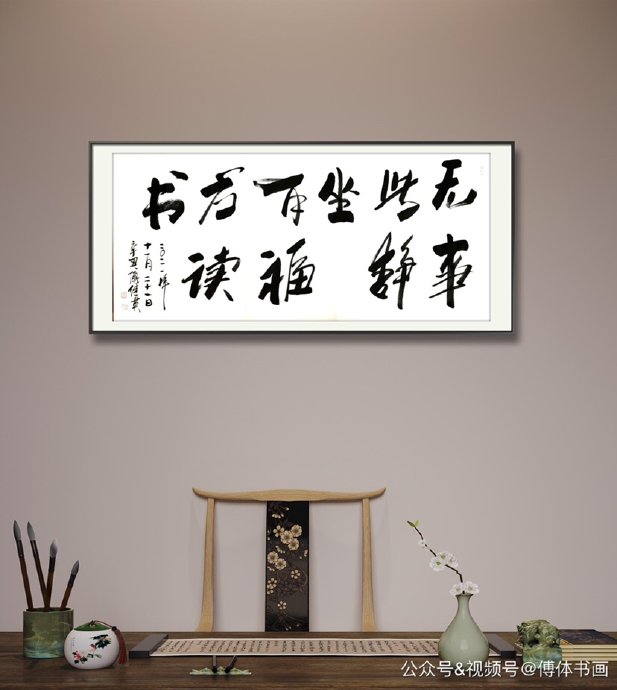 无事
此静
坐
有福
方读
书
二〇二一年
十一月二十一日
辛丑
公众号&视频号@傅体书画